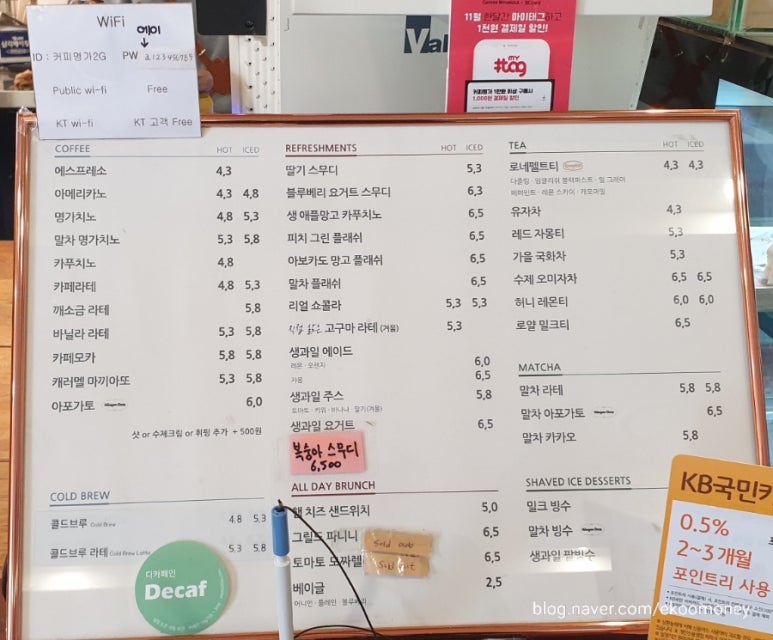 WiFi
에이
ID : 커피명가2G PW a123456789
Public wi-fi Free
KT wi-fi KT 고객 Free
Val
11월 한달간 마이태그하고
1천원 결제일 할인!
MY
#tag
커피명가 1만원 이상 구매시
1,000원 결제일 할인
COFFEE HOT ICED
에스프레소 4,3
아메리카노 4,3 4,8
명가치노 4,8 5,3
말차 명가치노 5,3 5,8
카푸치노 4,8
카페라테 4,8 5,3
깨소금 라테 5,8
바닐라 라테 5,3 5,8
카페모카 5,8 5,8
캐러멜 마끼아또 5,3 5,8
아포가토 Häagen-Dazs 6,0
샷 or 수제크림 or 휘핑 추가 + 500원
COLD BREW
콜드브루 Cold Brew 4.8 5.3
콜드브루 라테 Cold Brew Latte 5.3 5.8
디카페인
Decaf
REFRESHMENTS HOT ICED
딸기 스무디 5,3
블루베리 요거트 스무디 6,3
생 애플망고 카푸치노 6,5
피치 그린 플래쉬 6,5
아보카도 망고 플래쉬 6,5
말차 플래쉬 6,5
리얼 쇼콜라 5,3 5,3
고구마 라테 (겨울) 5,3
생과일 에이드 6,0
레몬 · 오렌지
자몽 6,5
생과일 주스 5,8
토마토 · 키위 · 바나나 · 딸기(겨울)
생과일 요거트 6,5
복숭아 스무디
6,500
ALL DAY BRUNCH
햄 치즈 샌드위치 5,0
그릴드 파니니 Sold out 6,5
토마토 모짜렐 Sold out 6,5
베이글 2,5
어니언 · 플레인 · 블루베리
TEA HOT ICED
로네펠트티 Ronnefeldt 4,3 4,3
다즐링 · 잉글리쉬 블랙퍼스트 · 얼 그레이
페퍼민트 · 레몬 스카이 · 캐모마일
유자차 4,3
레드 자몽티 5,3
가을 국화차 5,3
수제 오미자차 6,5 6,5
허니 레몬티 6,0 6,0
로얄 밀크티 6,5
MATCHA
말차 라테 5,8 5,8
말차 아포가토 Häagen-Dazs 6,5
말차 카카오 5,8
SHAVED ICE DESSERTS
밀크 빙수
말차 빙수 Häagen-Dazs
생과일 팥빙수
KB국민카
0.5%
2~3개월
포인트리 사용
blog.naver.com/ekoomoney